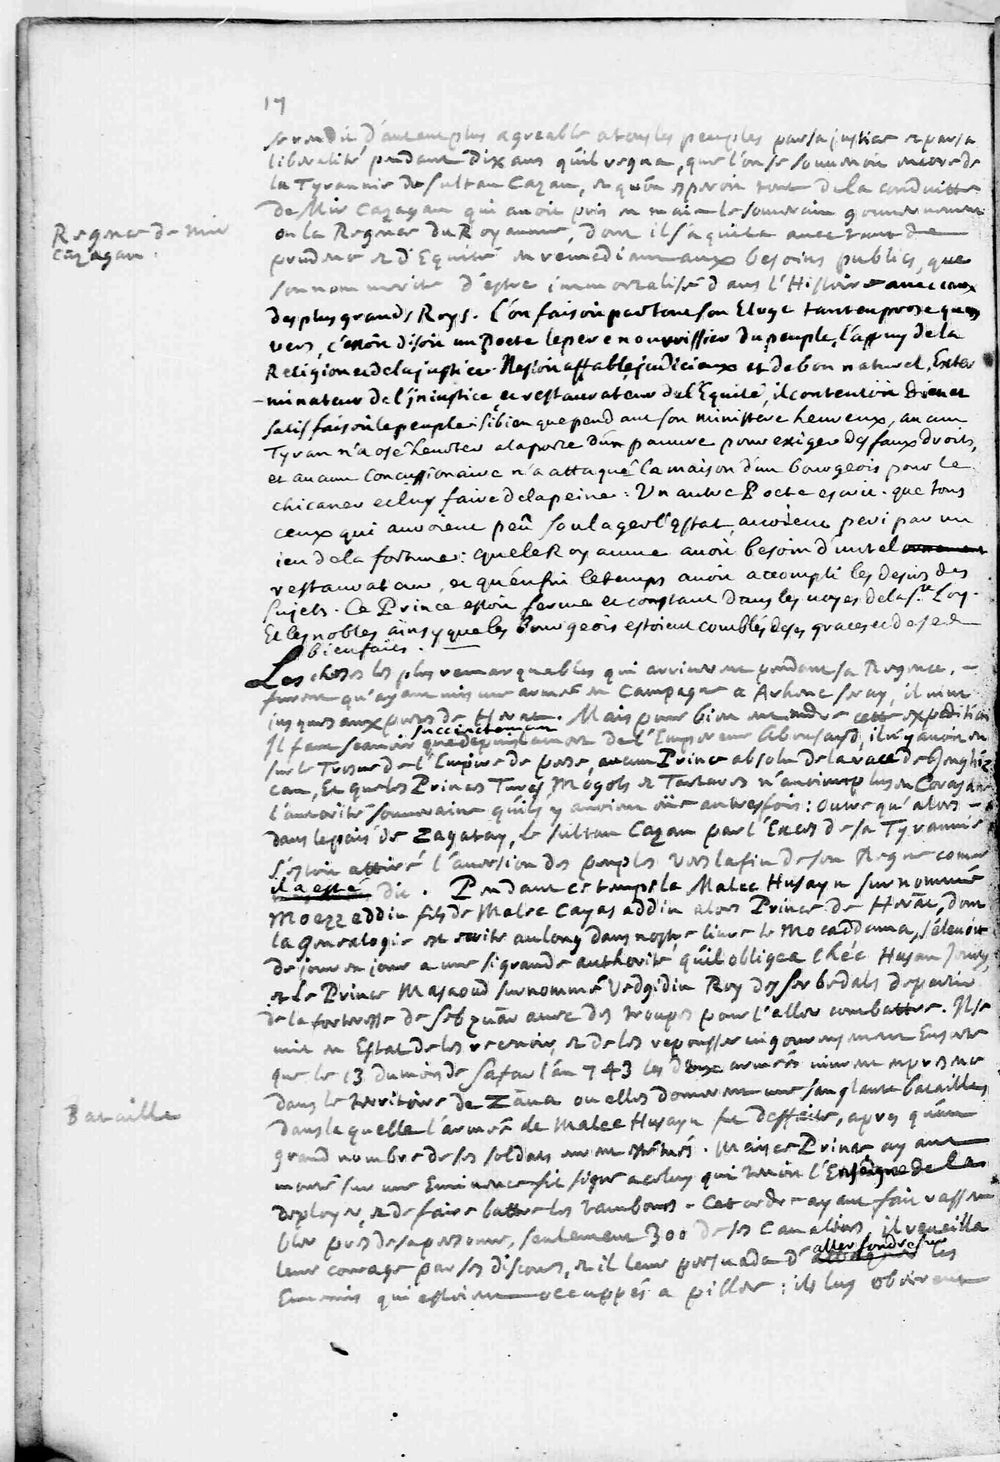 17
se rendit d'autant plus agreable a tous les peuples par sa justice et par sa
liberalité pendant dix ans qu'il regna, que l'on se souvenoit encore de
la Tyrannie de Sultan Cazan, et qu'on esperoit tout de la conduitte
de Mir Cazagan qui avoit pris en main le souverain gouvernement
Regence de Mir
Cazagan.
ou la Regence du Royaume, dont il s'aquita avec tant de
prudence et d'Equité en remediant aux besoins publics, que
son nom merite d'estre immortalisé dans l'Histoire avec ceux
des plus grands Roys. l'on faisoit par tout son Eloge tant en prose qu'en
vers, c'estoit disoit un Poete le pere nourrissier du peuple, l'appuy de la
Religion et de la justice. Il estoit affable judicieux et de bon naturel, Exter
minateur de l'injustice et restaurateur de l'Equité, il contentoit Dieu et
satisfaisoit le peuple: si bien que pendant son ministere heureux, aucun
Tyran n'a osé heurter a la porte d'un pauvre pour exiger des faux droits,
et aucun Concussionaire n'a attaqué la maison d'un bourgeois pour le
chicaner et luy faire de la peine: Un autre Poete escrit que tous
ceux qui auroient peû soulager l'Estat, avoient peri par un
jeu de la fortune: que le Royaume avoit besoin d'un tel
restaurateur, et qu'enfin le temps avoit accompli les desirs des
sujets. Ce Prince estoit ferme et constant dans les voyes de la Ste Loy.
Et les nobles ainsy que les Bourgeois estoient comblés de ses graces et de ses
bienfaits.
Les choses les plus remarquables qui arriverent pendant sa Regence,
furent qu'ayant mis une armée en Campagne a Arhenc Seray, il vint
jusques aux portes de Herat. Mais pour bien entendre cette expedition
succinctement
Il faut scavoir que depuis la mort de l'Empereur Abousayd, il n'y avoit eu
sur le Trosne de l'Empire de perse, aucun Prince absolu de la race de Genghiz
can, Et que les Princes Turcs Mogols et Tartares n'avoient plus en Corasane
l'autorité souveraine qu'ils y avoient eüe autresfois: outre qu'alors
dans le païs de Zagatay, le Sultan Cazan par l'Excés de sa Tyrannie
s'estoit attiré l'aversion des peuples vers la fin de son Regne comme
il a esté dit. Pendant ce temps la Malec Husayn surnommé
Moezzeddin fils de Malec Cayaseddin alors Prince de Herat, dont
la Genealogie est escrite au long dans nostre livre le Mocaddama, s'elevoit
de jour en jour a une si grande authorité qu'il obligea Chéc Hasan Joury,
et le Prince Masaoud surnommé Vedgidin Roy des Serbedals de partir
de la forteresse de Sebzuär avec des troupes pour l'aller combattre. Il se
mit en Estat de les recevoir, et de les repousser vigoureusement En sorte
que le 13 du mois de Safar l'an 743 les deux armées vinrent en presence
dans le territoire de Zäva ou elles donnerent une sanglante bataille,
Bataille
dans laquelle l'armée de Malec Husayn fut deffaite, apres qu'un
grand nombre de ses soldats eurent esté tués. Mais ce Prince ayant
monté sur une Eminence fit signe a celuy qui tenoit l'Enseigne de la
deployer, et de faire battre les tambours. Cet ordre ayant fait rassem
bler pres de sa personne, seulement 300 de ses Cavaliers, il reveilla
aller fondre sur
leur courage par ses discours, et il leur persuada d' les
Ennemis qui estoient occuppés a piller: ils luy obeirent